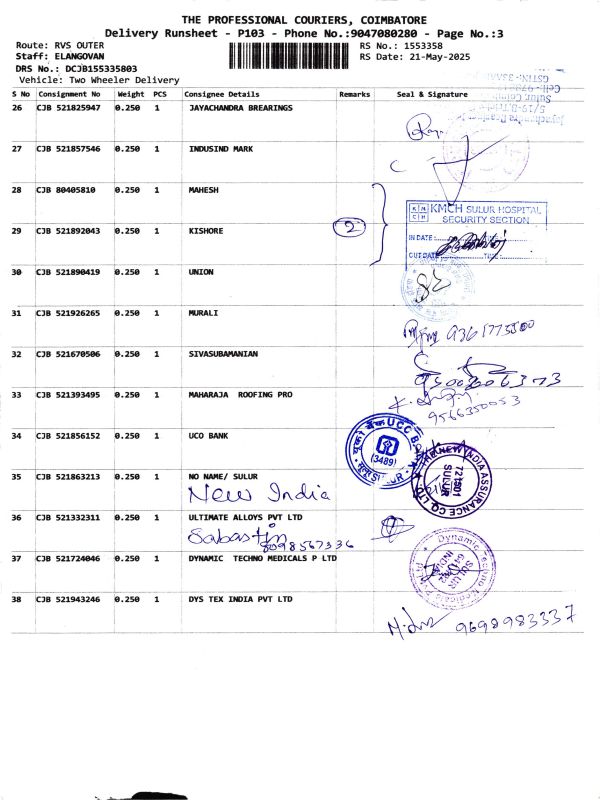 THE PROFESSIONAL COURIERS, COIMBATORE
Delivery Runsheet - P103 - Phone No.:9047080280 - Page No.:3
Route: RVS OUTER
RS No.: 1553358
Staff: ELANGOVAN
RS Date: 21-May-2025
DRS No.: DCJB155335803
Vehicle: Two Wheeler Delivery
S No Consignment No Weight PCS Consignee Details Remarks Seal & Signature
26 CJB 521825947 0.250 1 JAYACHANDRA BREARINGS
27 CJB 521857546 0.250 1 INDUSIND MARK
28 CJB 80405810 0.250 1 MAHESH
KMCH SULUR HOSPITAL
SECURITY SECTION
29 CJB 521892043 0.250 1 KISHORE 2
IN DATE:
OUT DATE
30 CJB 521890419 0.250 1 UNION
31 CJB 521926265 0.250 1 MURALI
9361773500
32 CJB 521670506 0.250 1 SIVASUBAMANIAN
9500206373
33 CJB 521393495 0.250 1 MAHARAJA ROOFING PRO
9566350053
34 CJB 521856152 0.250 1 UCO BANK
(3489)
SULUR
35 CJB 521863213 0.250 1 NO NAME/ SULUR
New India
THE NEW INDIA ASSURANCE CO. LTD.
721501
SULUR
36 CJB 521332311 0.250 1 ULTIMATE ALLOYS PVT LTD
Sabastin
8098567336
37 CJB 521724046 0.250 1 DYNAMIC TECHNO MEDICALS P LTD
Dynamic Techno Medicals
SULUR
38 CJB 521943246 0.250 1 DYS TEX INDIA PVT LTD
9698983337